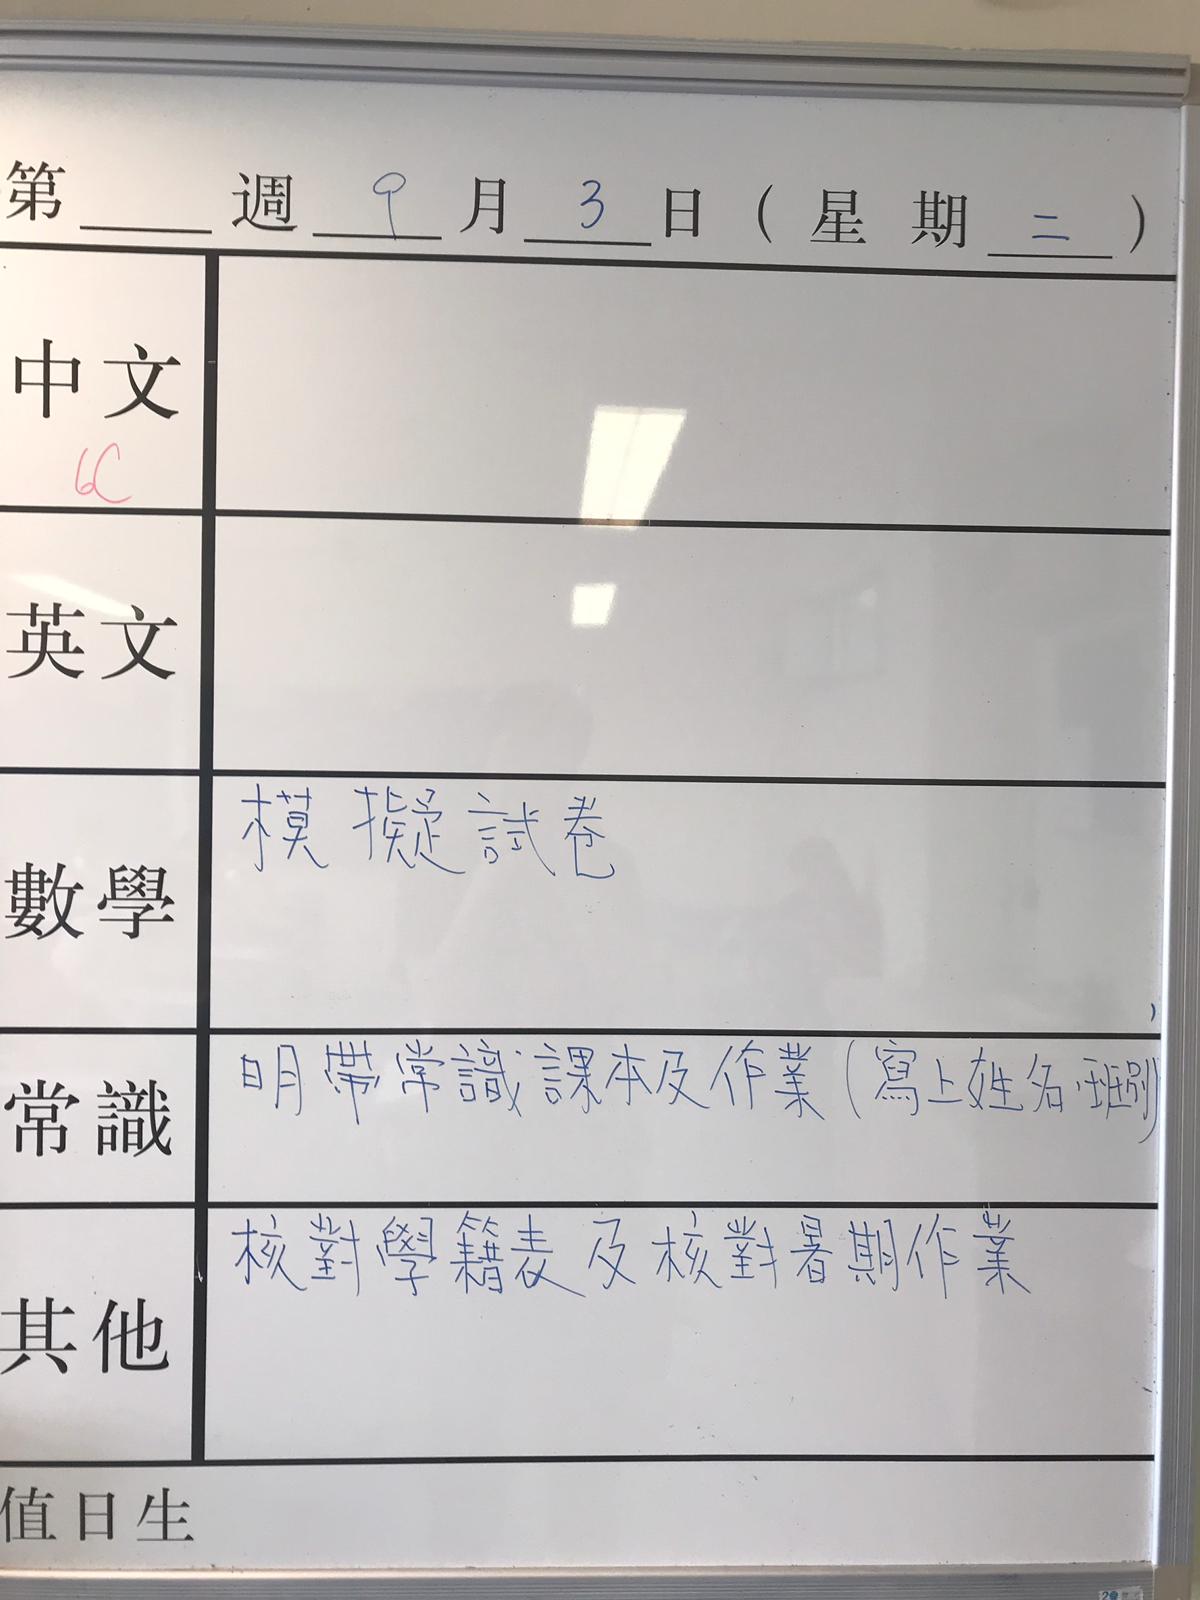 第 週 9 月 3 日 ( 星 期 二 )
中文
6C
英文
數學
模擬試卷
常識
明帶常識課本及作業(寫上姓名、班別)
其他
核對學籍表及核對暑期作業
值日生